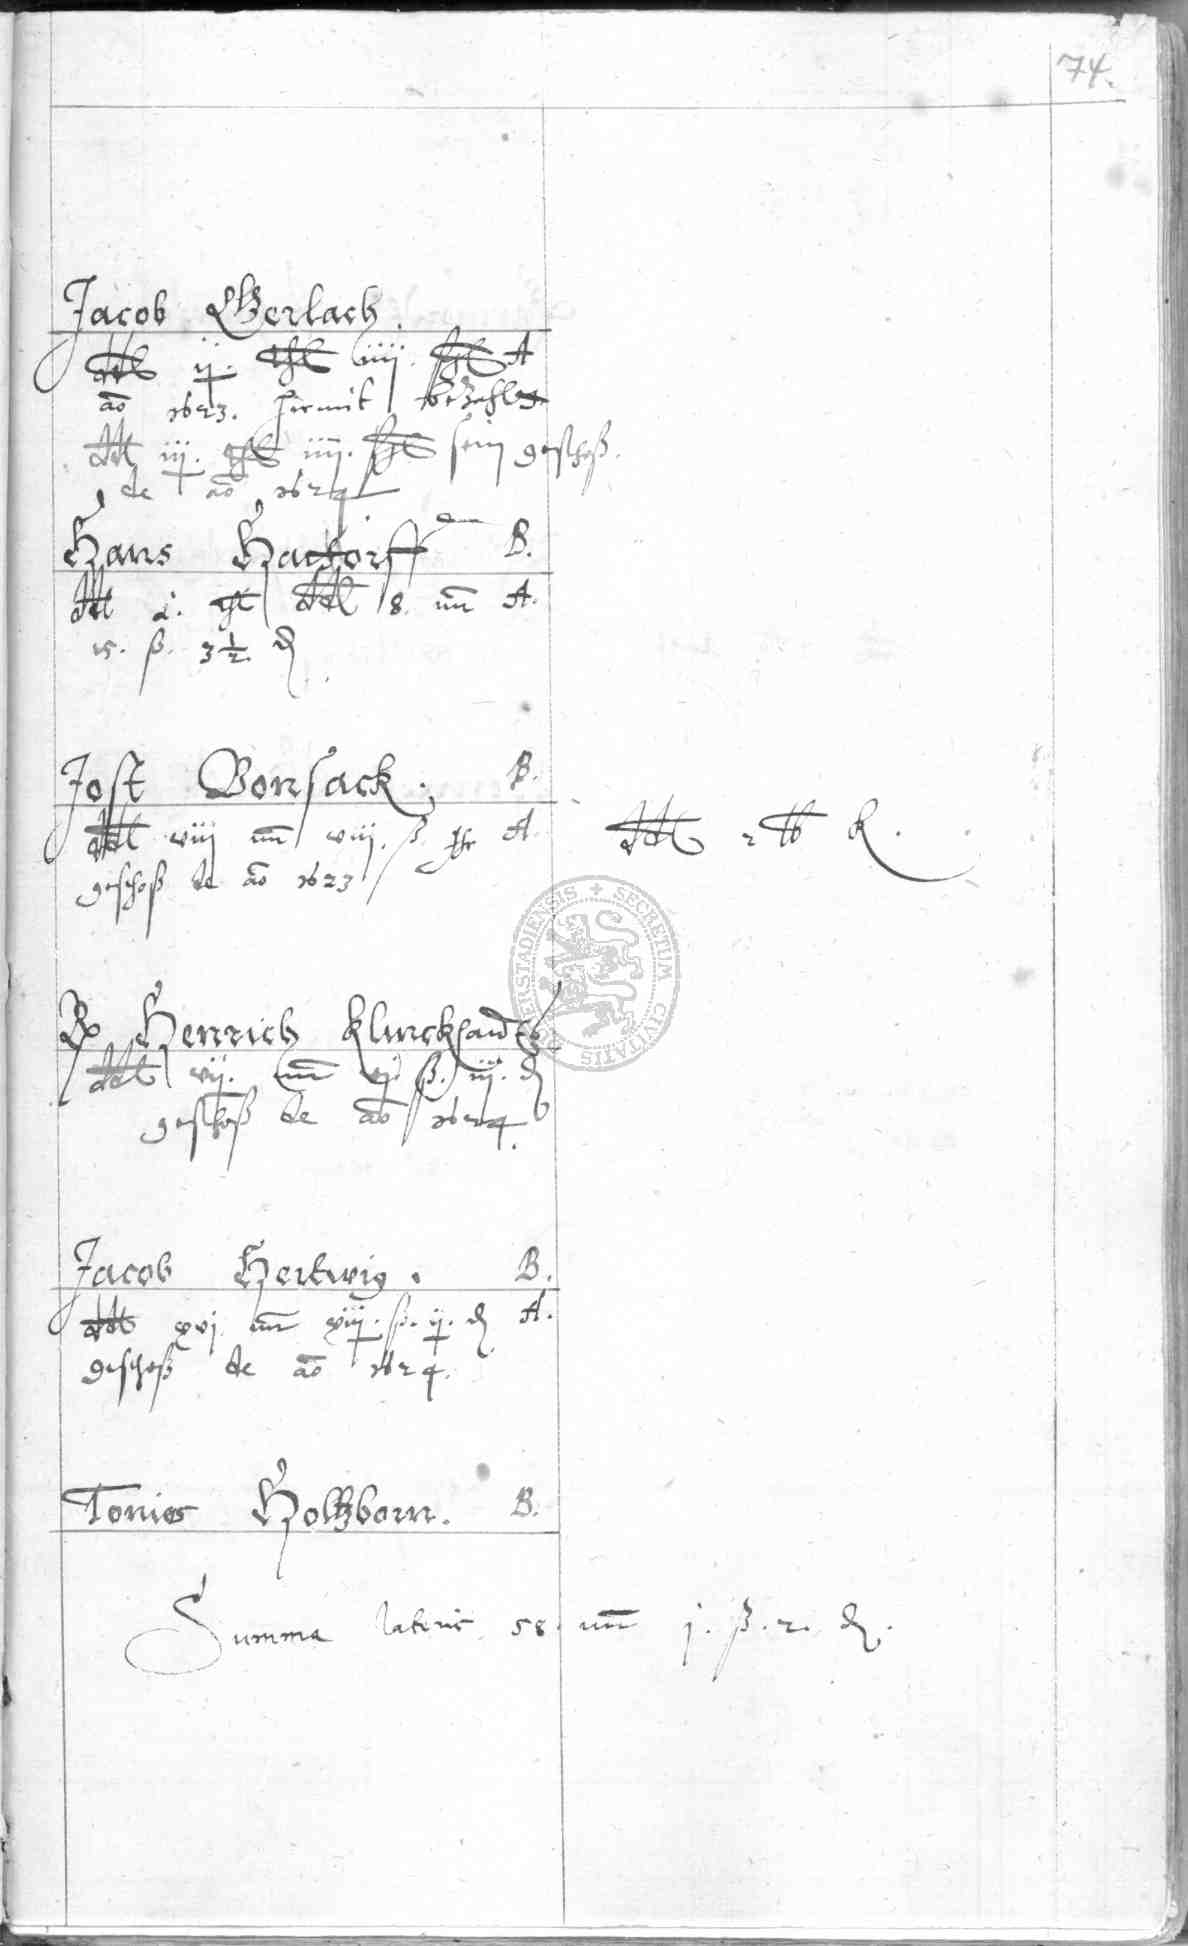 74.
Jacob Gerlach.
ddt ij. thl iiij. ßgl A
ao 1623. hiemit bezahlt
ddt iij. thl iiij. ßgl sein geschoß.
de ao 1624
Hans Hactorff B.
ddt 2. thl ddt 8. mr A.
15. ß. 3½ d
Jost Bonsack. B.
ddt viij mr viij. ß A.
geschoß de ao 1623
ddt 2 R.
Henrich Klinckhardt
ddt vij. mr vj. ß. iij. d
geschoß de ao 1624.
Jacob Hertwig. B.
ddt xvj mr viij. ß. ij. d A.
geschoß de ao 1624.
Tonies Holtzborn. B.
Summa lateris 58. mr j. ß. 2. d.
SECRETUM CIVITATIS DUDERSTADIENSIS